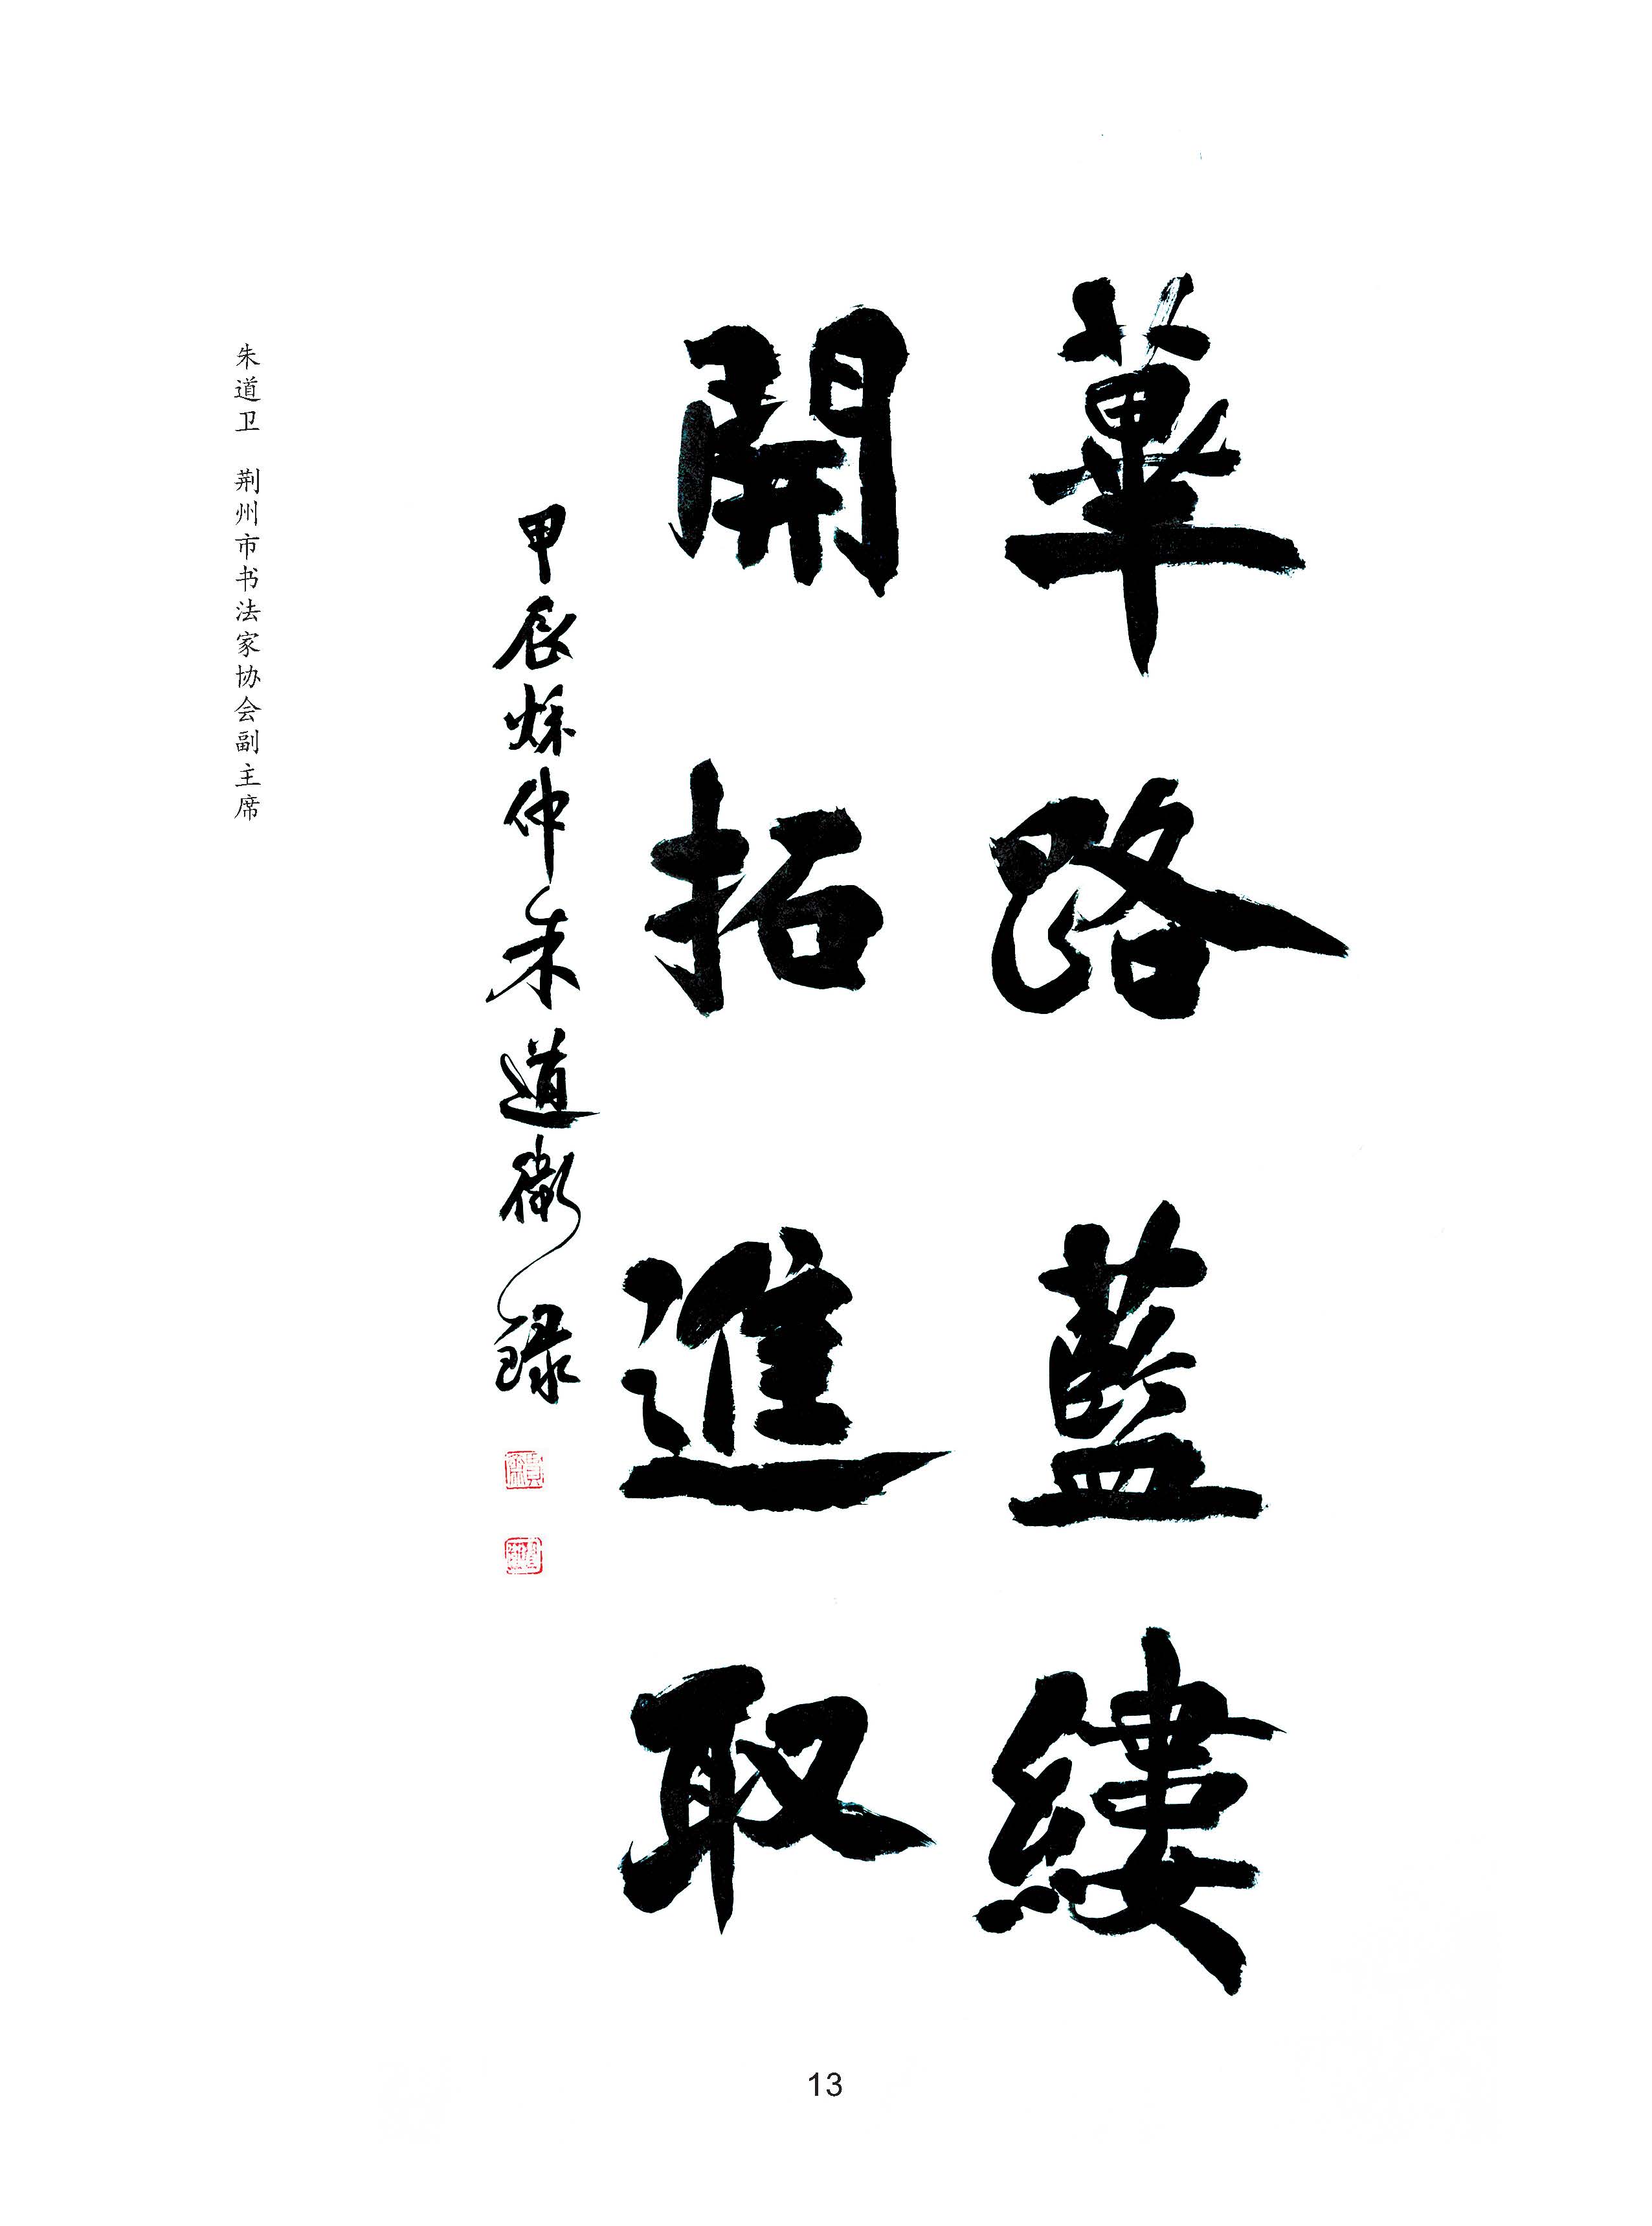 蓽路藍縷
開拓進取
甲辰烁仲朱道衛録
朱道卫 荆州市书法家协会副主席
13